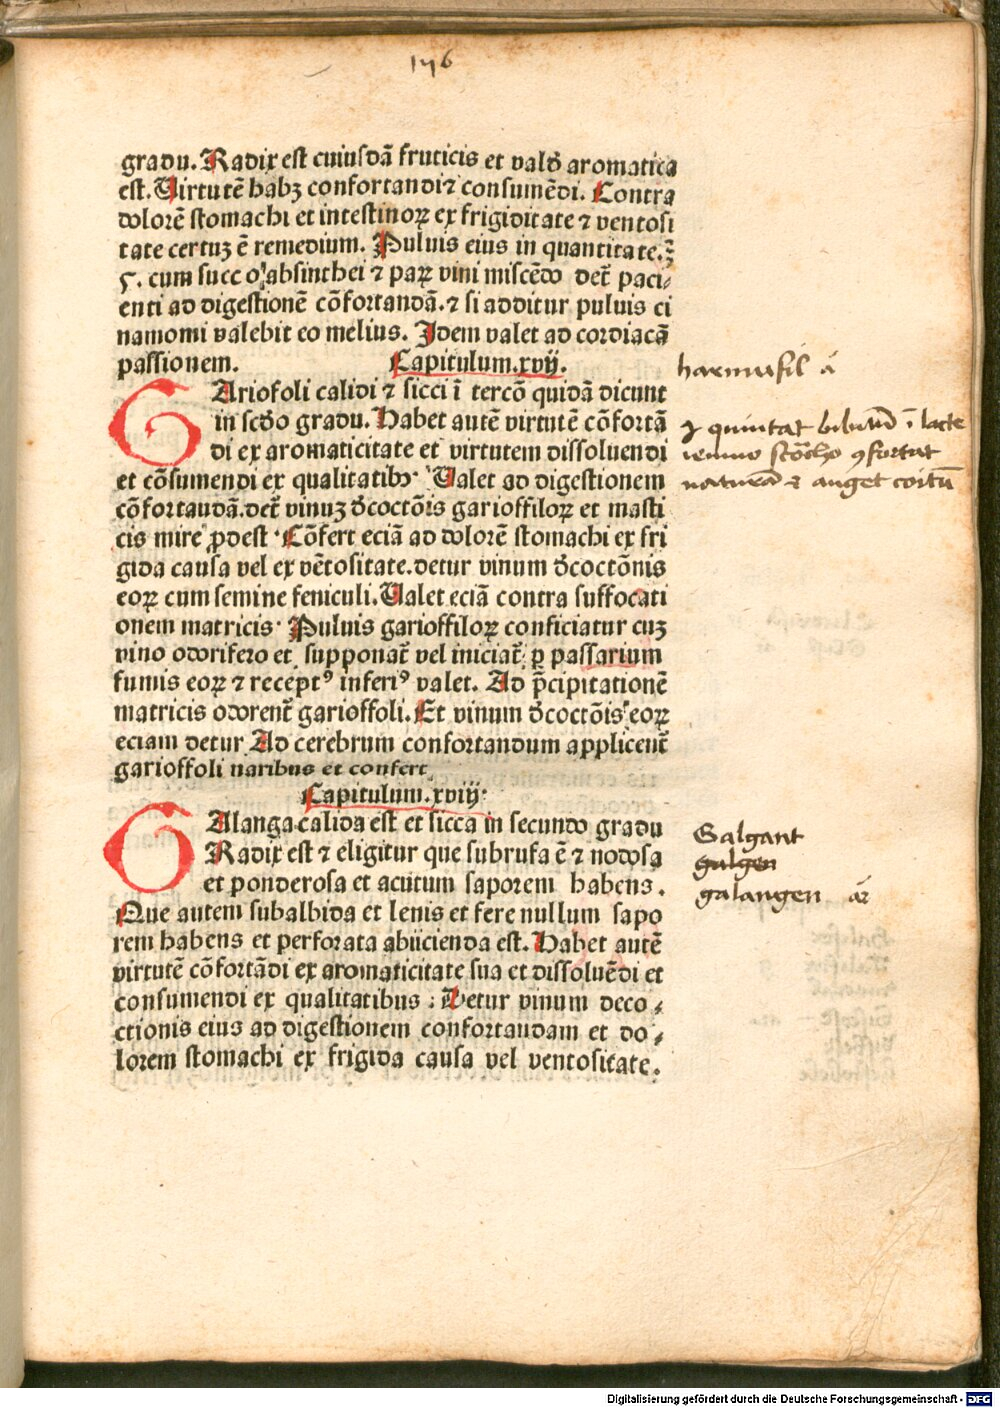 176
gradu. Radix est cuiusdā fruticis et vald̄ aromatica
est. Virtutē habꝫ confortandi ⁊ consumēdi. Contra
dolorē stomachi et intestinoꝝ ex frigiditate ⁊ ventosi
tate certuꝫ ē remedium. Puluis eius in quantitate.ʒ̄
ϛ. cum succo absinthei ⁊ paꝝ vini miscēdo det̄ paci⸗
enti ad digestionē cōfortandā.⁊ si additur puluis ci
namomi valebit eo melius. Idem valet ad cordiacā
passionem. Capitulum.xvij.
harmusil ā
GAriofoli calidi ⁊ sicci ī tercō quidā dicunt
in scd̄o gradu. Habet autē virtutē cōfortā
di ex aromaticitate et virtutem dissoluendi
et cōsumendi ex qualitatibꝰ. Valet ad digestionem
cōfortandā.det̄ vinuꝫ d̄coctōis garioffiloꝝ et masti
cis mire ꝓdest. Cōfert eciā ad dolorē stomachi ex fri
gida causa vel ex vētositate.detur vinum d̄coctōnis
eoꝝ cum semine feniculi. Valet eciā contra suffocati
onem matricis. Puluis garioffiloꝝ conficiatur cuꝫ
vino odorifero et supponat̄ vel iniciat̄ ꝑ passarium
fumis eoꝝ ⁊ receptꝰ inferiꝰ valet. Ad p̄cipitationē
matricis odorent̄ garioffoli. Et vinum d̄coctōis eoꝝ
eciam detur Ad cerebrum confortandum applicent̄
garioffoli naribus et confert.
lacte
naturā ⁊ auget coitū
Capitulum.xviij.
GAlanga calida est et sicca in secundo gradu
Radix est ⁊ eligitur que subrufa ē ⁊ nodosa
et ponderosa et acutum saporem habens.
Que autem subalbida et lenis et fere nullum sapo
rem habens et perforata abiicienda est. Habet autē
virtutē cōfortādi ex aromaticitate sua et dissoluēdi et
consumendi ex qualitatibus : Detur vinum deco⸗
ctionis eius ad digestionem confortandam et do⸗
lorem stomachi ex frigida causa vel ventositate.
Galgant
galgen
galangen
Digitalisierung gefördert durch die Deutsche Forschungsgemeinschaft - DFG